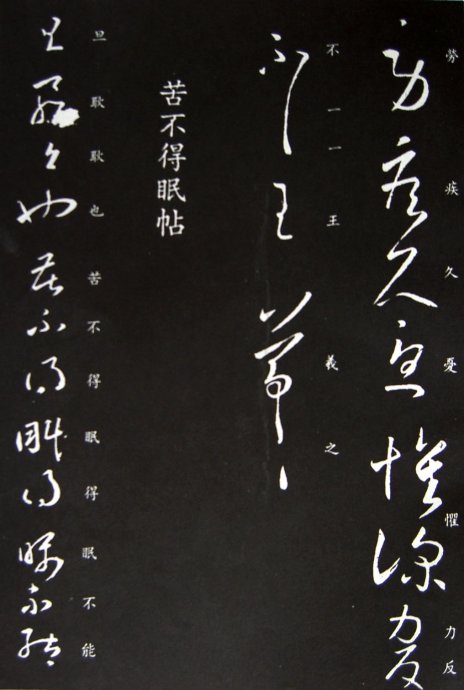 勞疾久憂懼力反
不一一王羲之
苦不得眠帖
旦耿耿也苦不得眠得眠不能